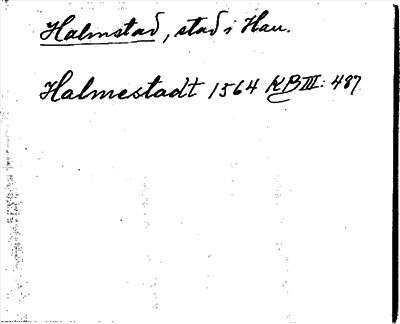 Halmstad, stad i Hall.
Halmestadt 1564 KB III: 487